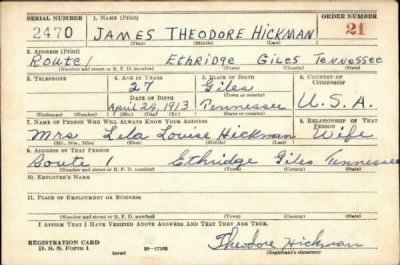 SERIAL NUMBER 1. NAME (Print) ORDER NUMBER
2470 JAMES THEODORE HICKMAN 21
(First) (Middle) (Last)
2. ADDRESS (Print)
Route 1 Ethridge Giles Tennessee
(Number and street or R. F. D. number) (Town) (County) (State)
3. TELEPHONE 4. AGE IN YEARS 5. PLACE OF BIRTH 6. COUNTRY OF CITIZENSHIP
27 Giles
DATE OF BIRTH (Town or county)
April 24, 1913 Tennessee U.S.A.
(Exchange) (Number) (Mo.) (Day) (Yr.) (State or country)
7. NAME OF PERSON WHO WILL ALWAYS KNOW YOUR ADDRESS 8. RELATIONSHIP OF THAT PERSON
Mrs Lela Louise Hickman Wife
(Mr., Mrs., Miss) (First) (Middle) (Last)
9. ADDRESS OF THAT PERSON
Route 1 Ethridge Giles Tennessee
(Number and street or R. F. D. number) (Town) (County) (State)
10. EMPLOYER'S NAME
11. PLACE OF EMPLOYMENT OR BUSINESS
(Number and street or R. F. D. number) (Town) (County) (State)
I AFFIRM THAT I HAVE VERIFIED ABOVE ANSWERS AND THAT THEY ARE TRUE.
REGISTRATION CARD Theodore Hickman
D. S. S. Form 1 (over) 16—17105 (Registrant's signature)